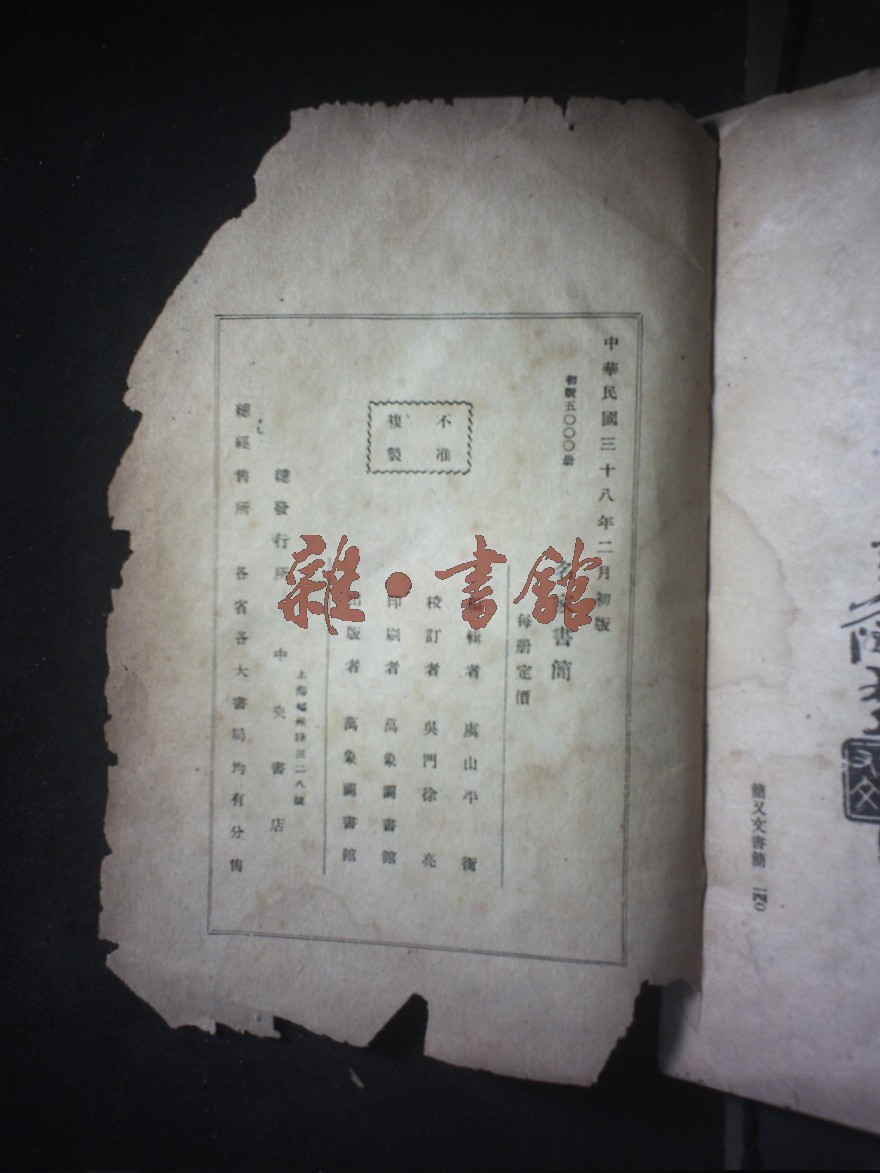 中華民國三十八年二月初版
初版五〇〇〇册
名家書簡
每册定價
不准
複製
編輯者 虞山平衡
校訂者 吳門徐亮
印刷者 萬象圖書館
出版者 萬象圖書館
上海福州路三二八號
總發行所 中央書店
總經售所 各省各大書局均有分售
雜·書館
簡又文書簡 一四〇